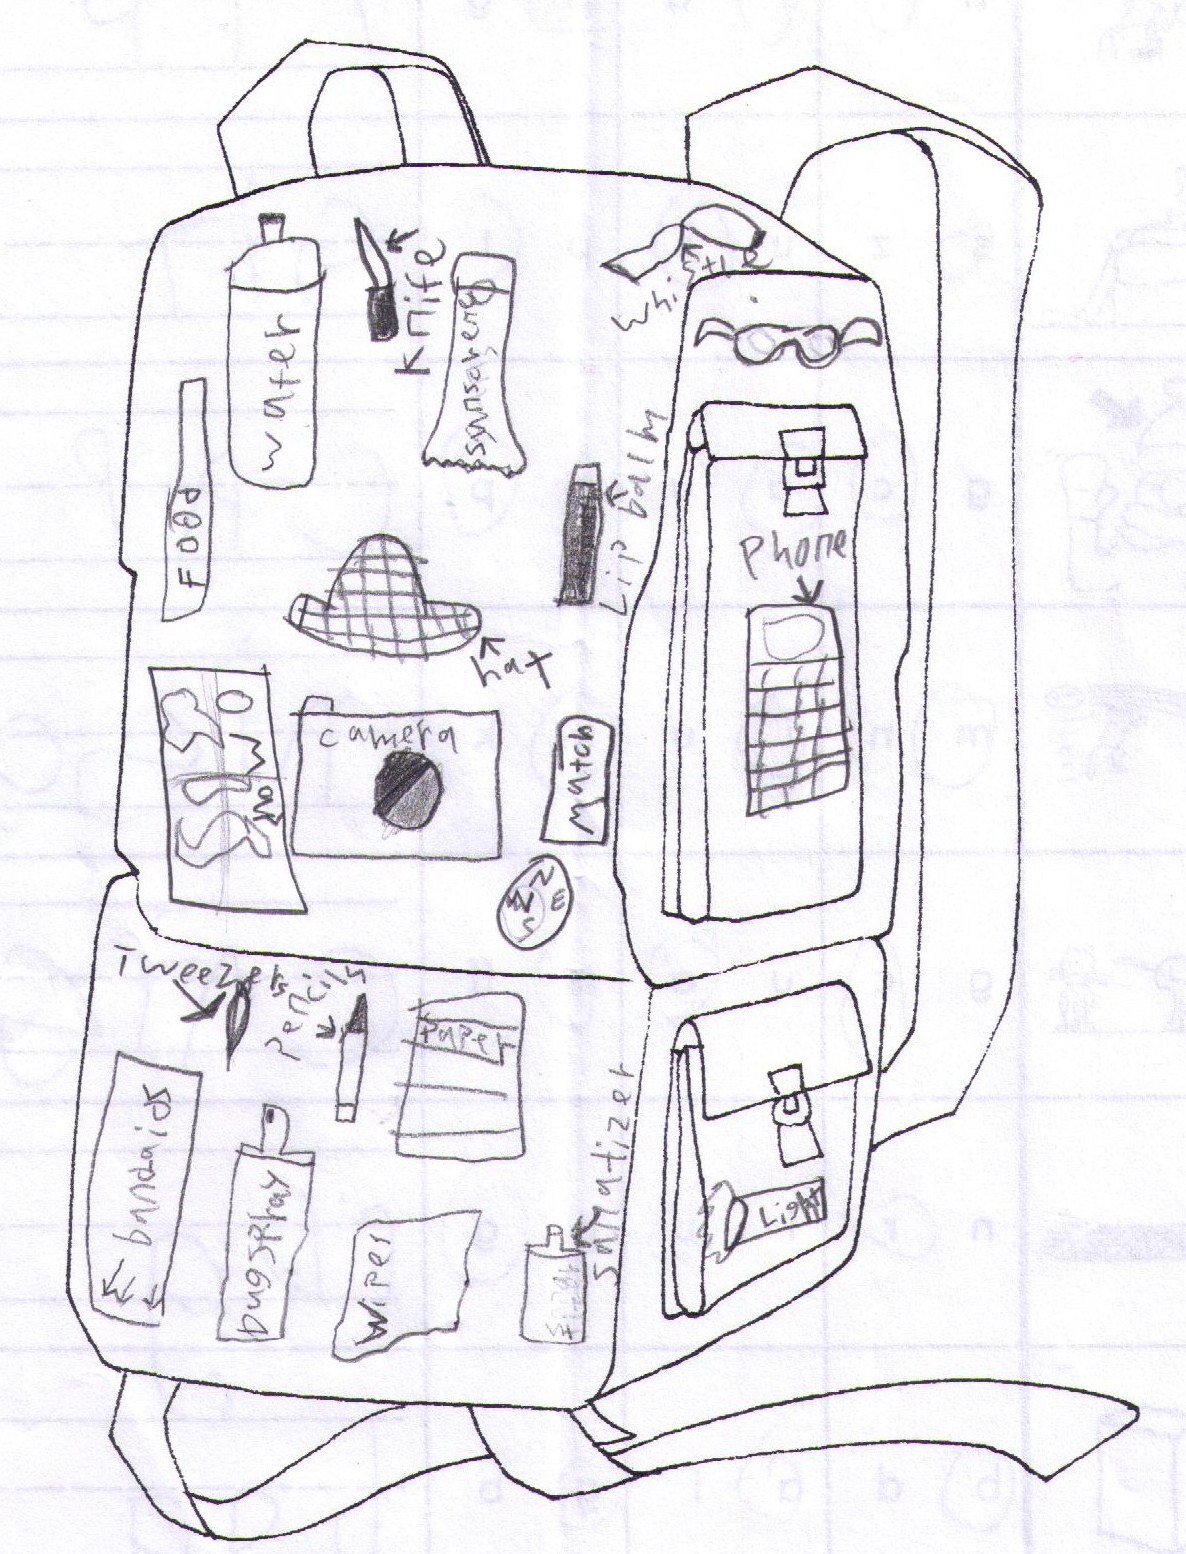 water
Knife
sunscreen
Whistle
Food
Lip balm
Phone
hat
camera
Match
N
E
S
W
Tweezers
Pencils
Paper
bandaids
bug spray
Wipes
Light